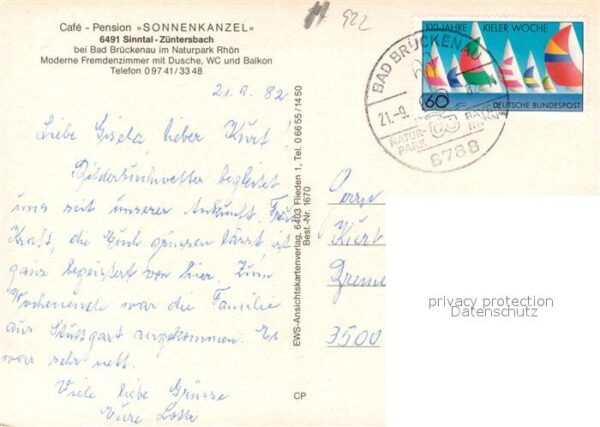 Café - Pension »SONNENKANZEL«
6491 Sinntal-Züntersbach
bei Bad Brückenau im Naturpark Rhön
Moderne Fremdenzimmer mit Dusche, WC und Balkon
Telefon 0 97 41 / 33 48
922
100 JAHRE KIELER WOCHE
60
DEUTSCHE BUNDESPOST
BAD BRÜCKENAU
21.-9.
NATUR-
PARK
6788
21.9.82
Liebe Gisela, lieber Kurt!
Bilderbuchwetter begleitet
uns seit unserer Ankunft. Frau
die Euch grüssen lässt ist
ganz begeistert von hier. Zum
Wochenende war die Familie
aus Stuttgart angekommen. Es
war sehr nett.
Viele liebe Grüsse
Eure Lotte
EWS-Ansichtskartenverlag, 6403 Flieden 1, Tel. 0 66 55 / 14 50
Best.-Nr. 1670
CP
Herrn
Kurt
3500
privacy protection
Datenschutz